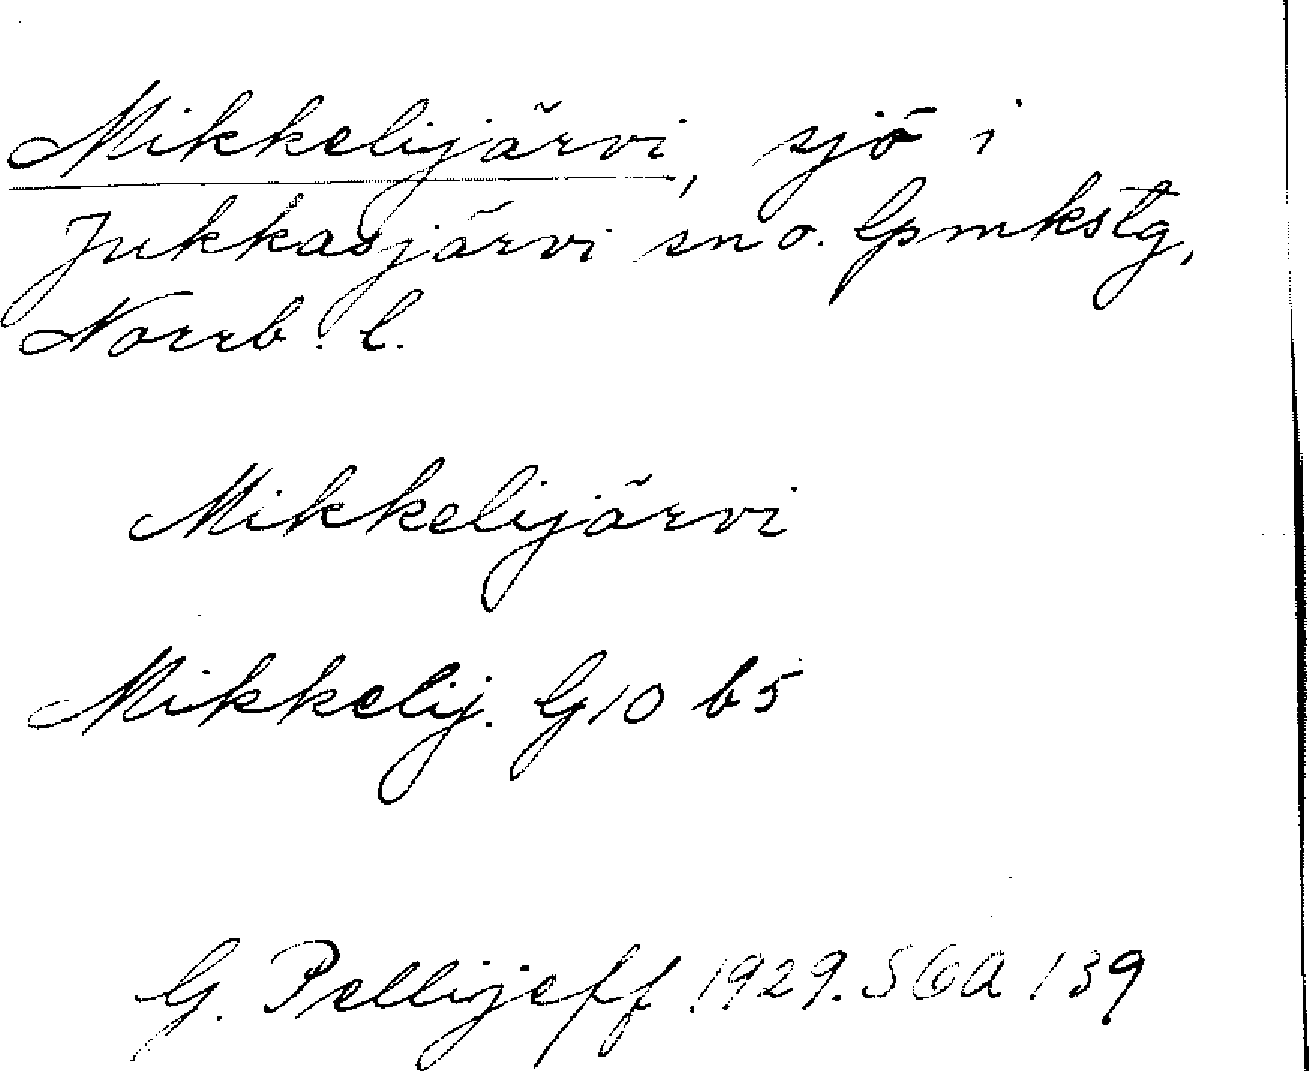 Mikkelijärvi, sjö i
Jukkasjärvi sn o. lpmkstg,
Norrb. l.
Mikkelijärvi
Mikkelij. G10 b5
G. Pellijeff 1929. SGA 139